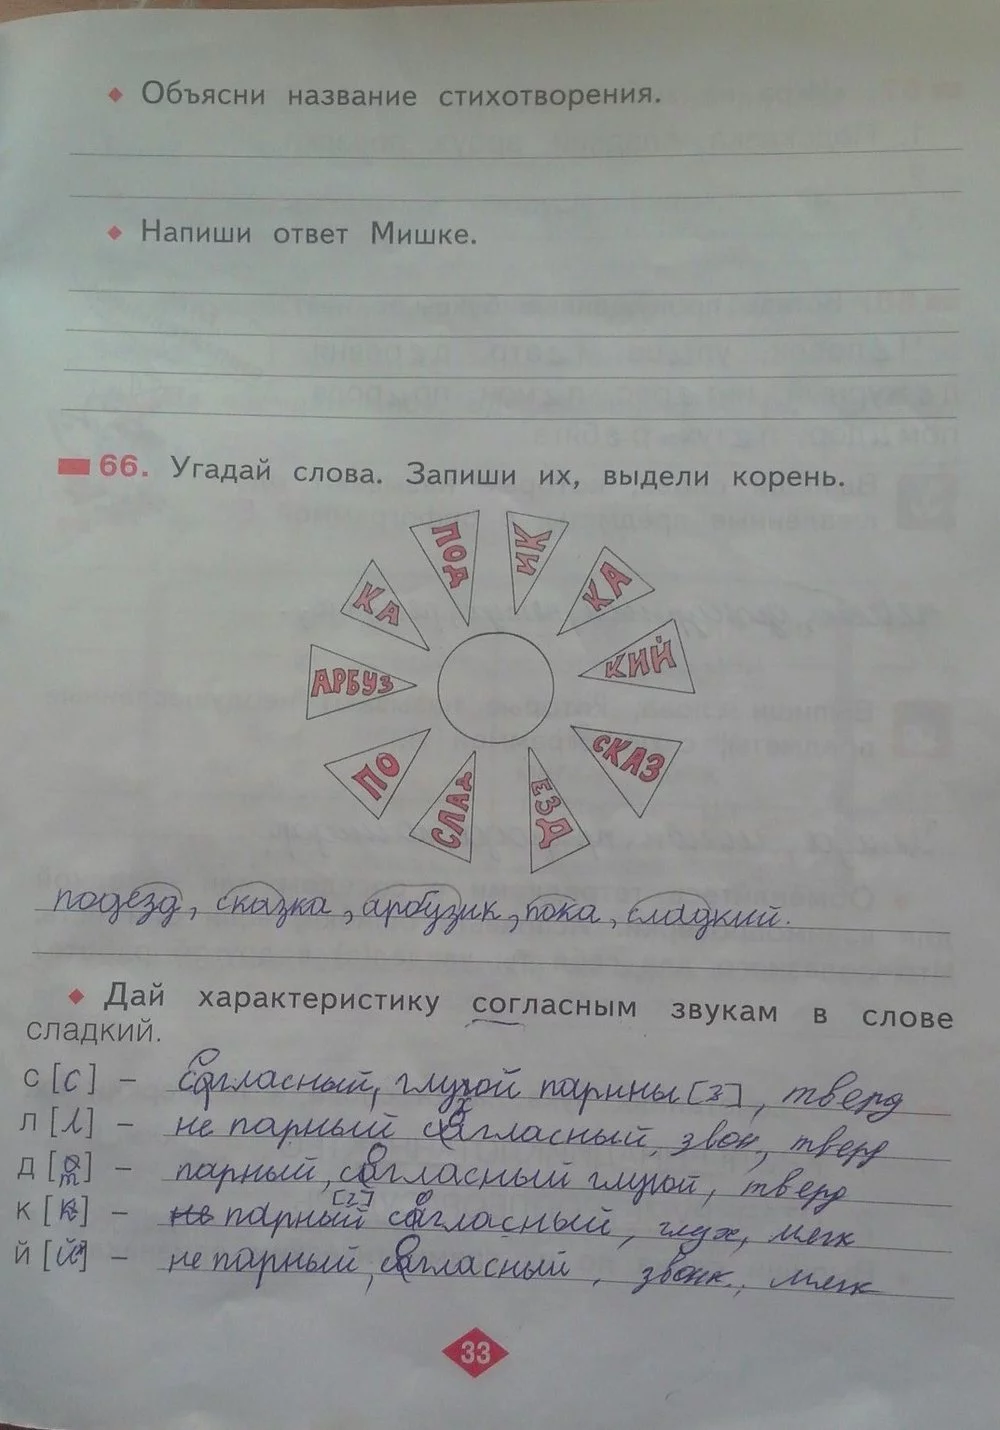 Объясни название стихотворения.
Напиши ответ Мишке.
66. Угадай слова. Запиши их, выдели корень.
ПОД
ИК
КА
КА
КИЙ
АРБУЗ
СКАЗ
ПО
СЛАД
ЕЗД
подезд, сказка, арбузик, пока, сладкий.
Дай характеристику согласным звукам в слове
сладкий.
с [с] – согласный, глухой парины [З], тверд
л [л] – не парный согласный, звон, тверд
д [т] – парный, согласный глухой, тверд
[г]
к [к] – не парный согласный, глух, мягк
й [й] – не парный, согласный, звонк, мягк
33